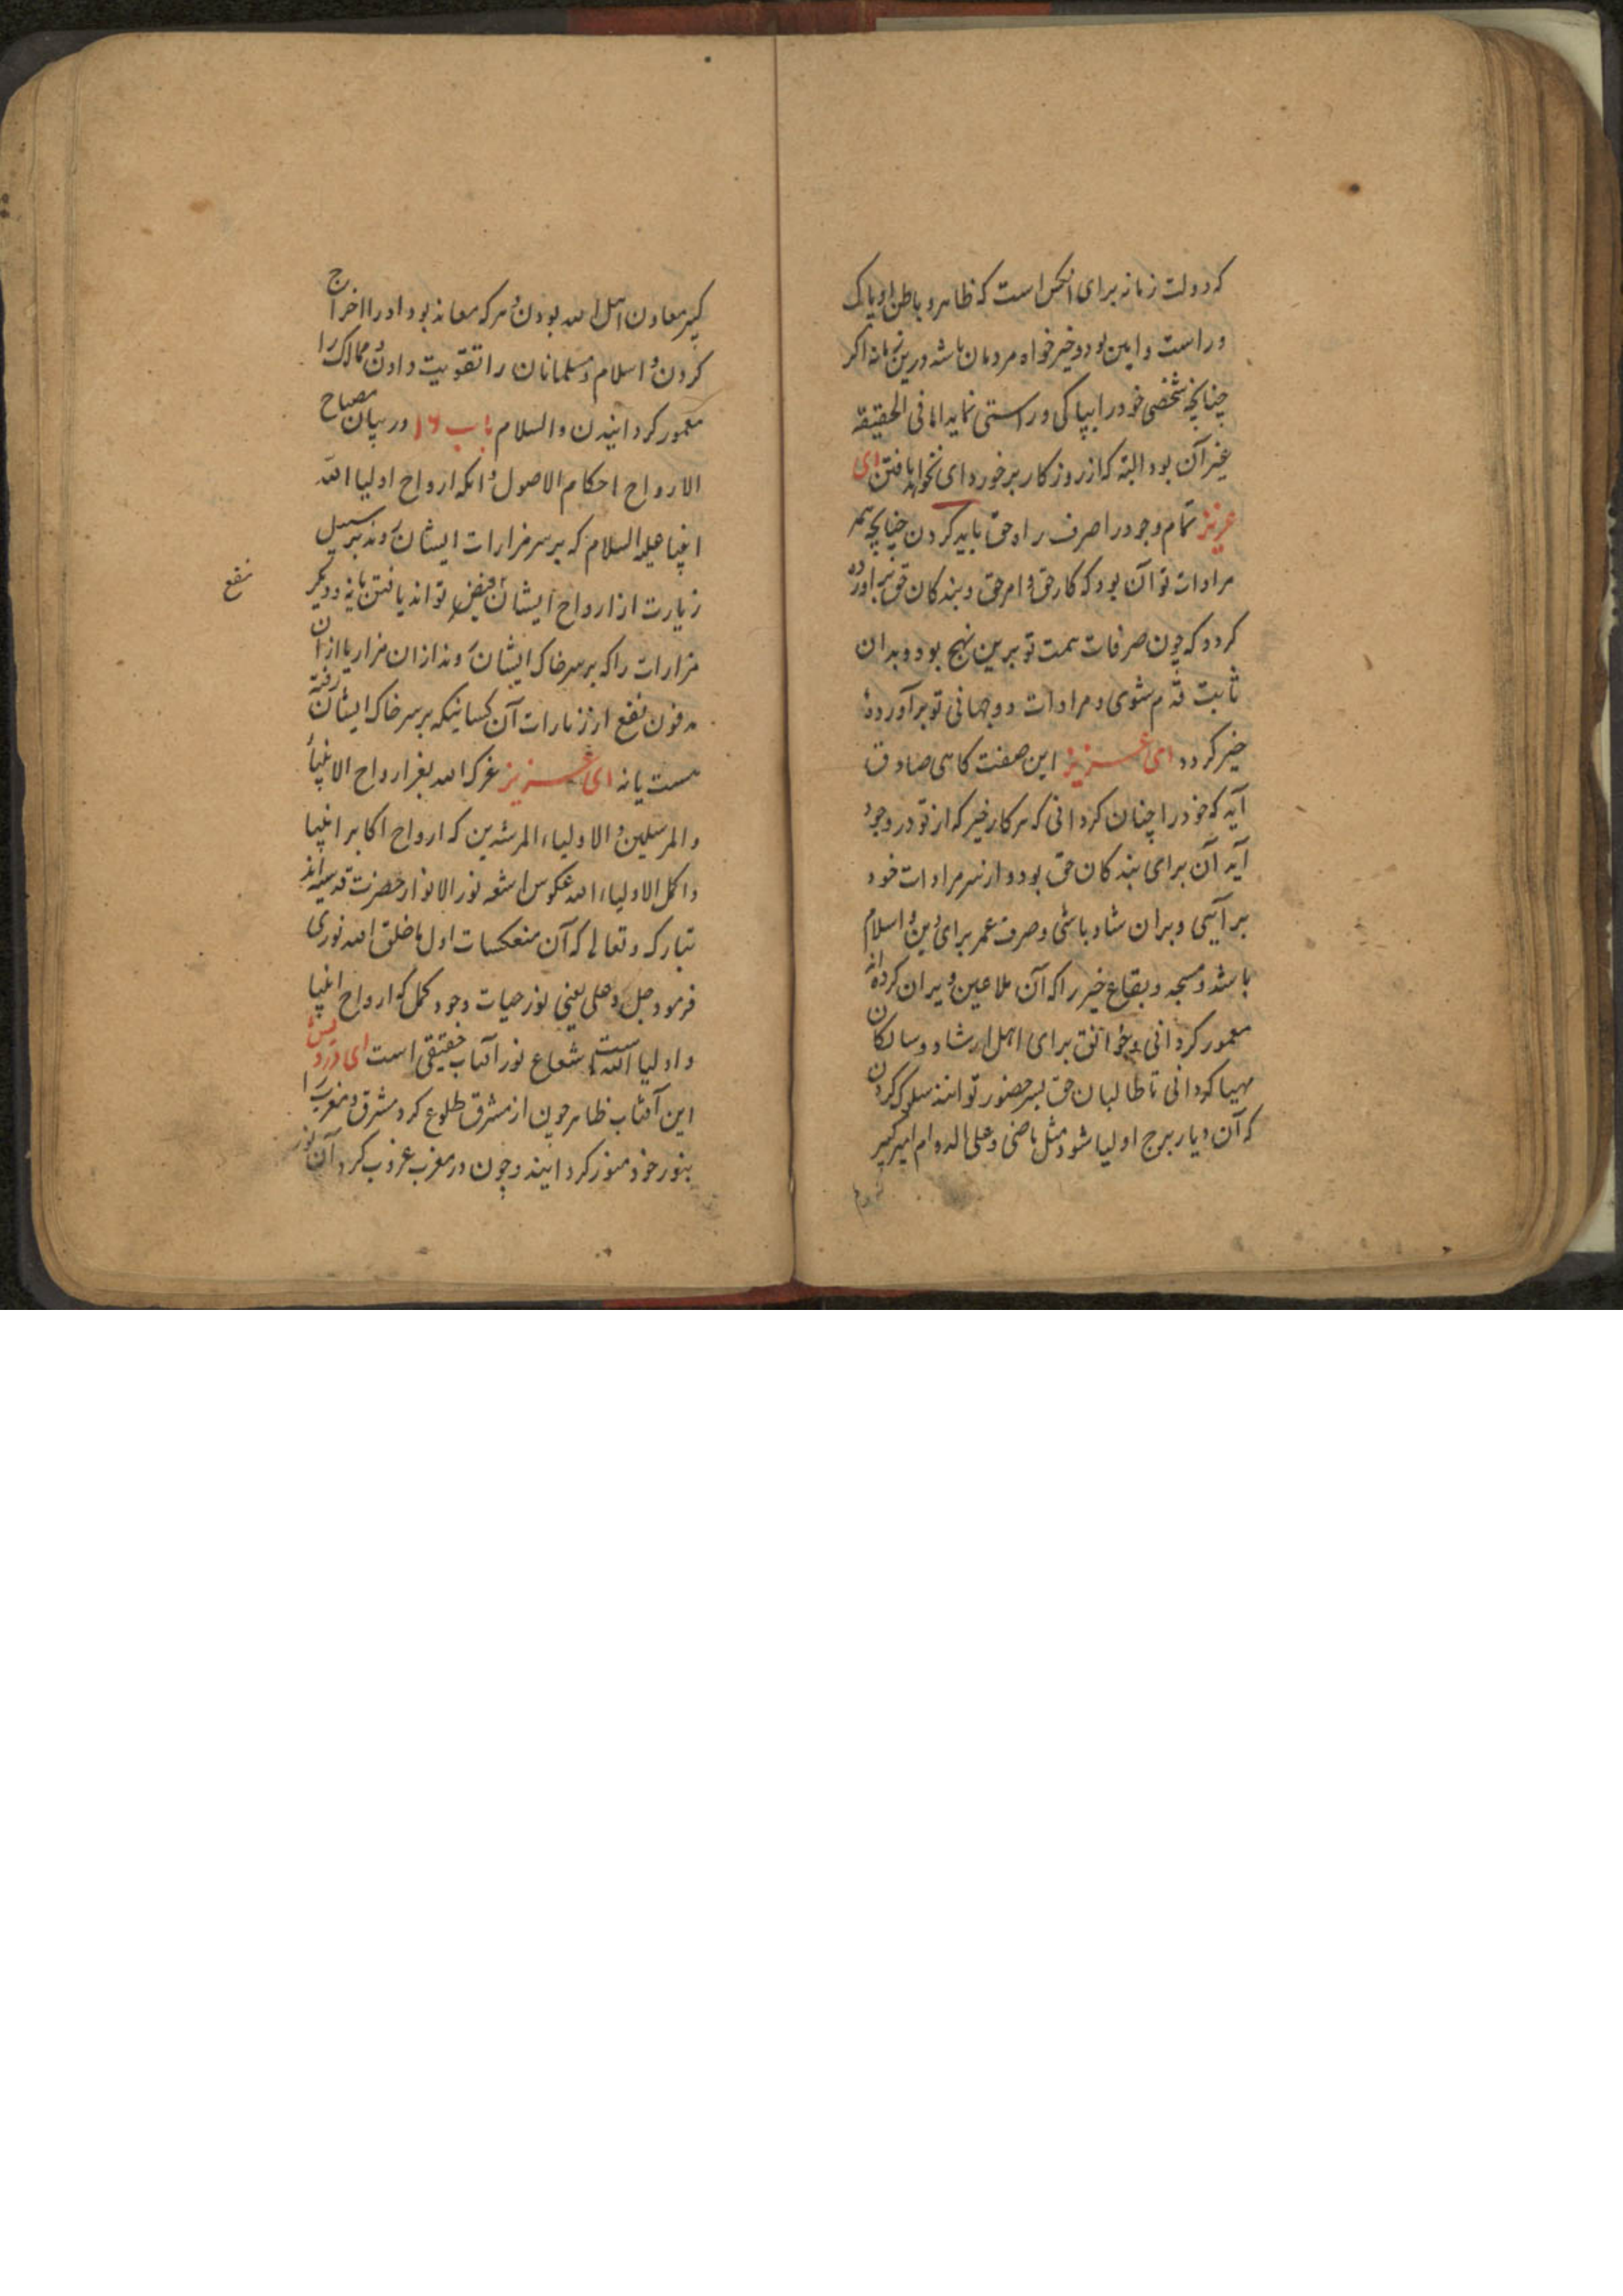 که دولت زمانه برای آنکس است که ظاهر و باطن او پاک
و راست و امین بود و خیرخواه مردمان باشد درین زمانه اکر
چنانچه شخصی خود را بپاکی و راستی نماید اما فی الحقیقه
غیر آن بود البته که از روزکار برخوردای نخواهد یافتن ای
عزیز تمام وجود را صرف راه حق باید کردن چنانچه همه
مرادات تو آن بود که کار حق و امر حق و بندکان حق برآورده
کردد که چون صرفات همت تو برین نهج بود و بدان
ثابت قدم شوی و مرادات دوجهانی تو برآورده
خیر کردد ای عزیز این صفت کاهی صادق
آید که خود را چنان کردانی که هر کار خیر که از تو در وجود
آید آن برای بندکان حق بود و از سر مرادات خود
برآیی و بران شاد باشی و صرف عمر برای دین و اسلام
باشد و مسجد و بقاع خیر را که آن ملاعین ویران کرده‌اند
معمور کردانی و خوانق برای اهل ارشاد و سالکان
مهیا کردانی تا طالبان حق بسر حضور توانند سلوک کردن
که آن دیار برج اولیا شود مثل ماضی و علی الدوام امیر کبیر
کبیر معاون اهل الله بودن و هر که معاند بود او را اخراج
کردن و اسلام و مسلمانان را تقویت دادن و ممالک را
معمور کردانیدن والسلام باب ۱۶ در بیان مصباح
الارواح احکام الاصول و انکه ارواح اولیا الله
انبیا علیه السلام که بر سر مزارات ایشان روند بر سبیل
زیارت از ارواح ایشان فیض تواند یافتن یا نه و دیکر
نفع
مزارات را که بر سر خاک ایشان روند از ان مزار یا از ان
مدفون نفع از زیارات آن کسانیکه بر سر خاک ایشان رفته
هست یا نه ای عزیز عزک الله بعز ارواح الانبیأ
والمرسلین والاولیاء المرشدین که ارواح اکابر انبیا
و اکمل الاولیاء الله عکوس اشعه نور الانوار حضرت قدسیه اند
تبارک وتعالی که آن منعکسات اول ما خلق الله نوری
فرمود جل وعلی یعنی نور حیات وجود کمل که ارواح انبیا
و اولیا الله است شعاع نور آفتاب حقیقی است ای درویش
این آفتاب ظاهر چون از مشرق طلوع کرد مشرق و مغرب را
بنور خود منور کردانید و چون در مغرب غروب کرد آن نور